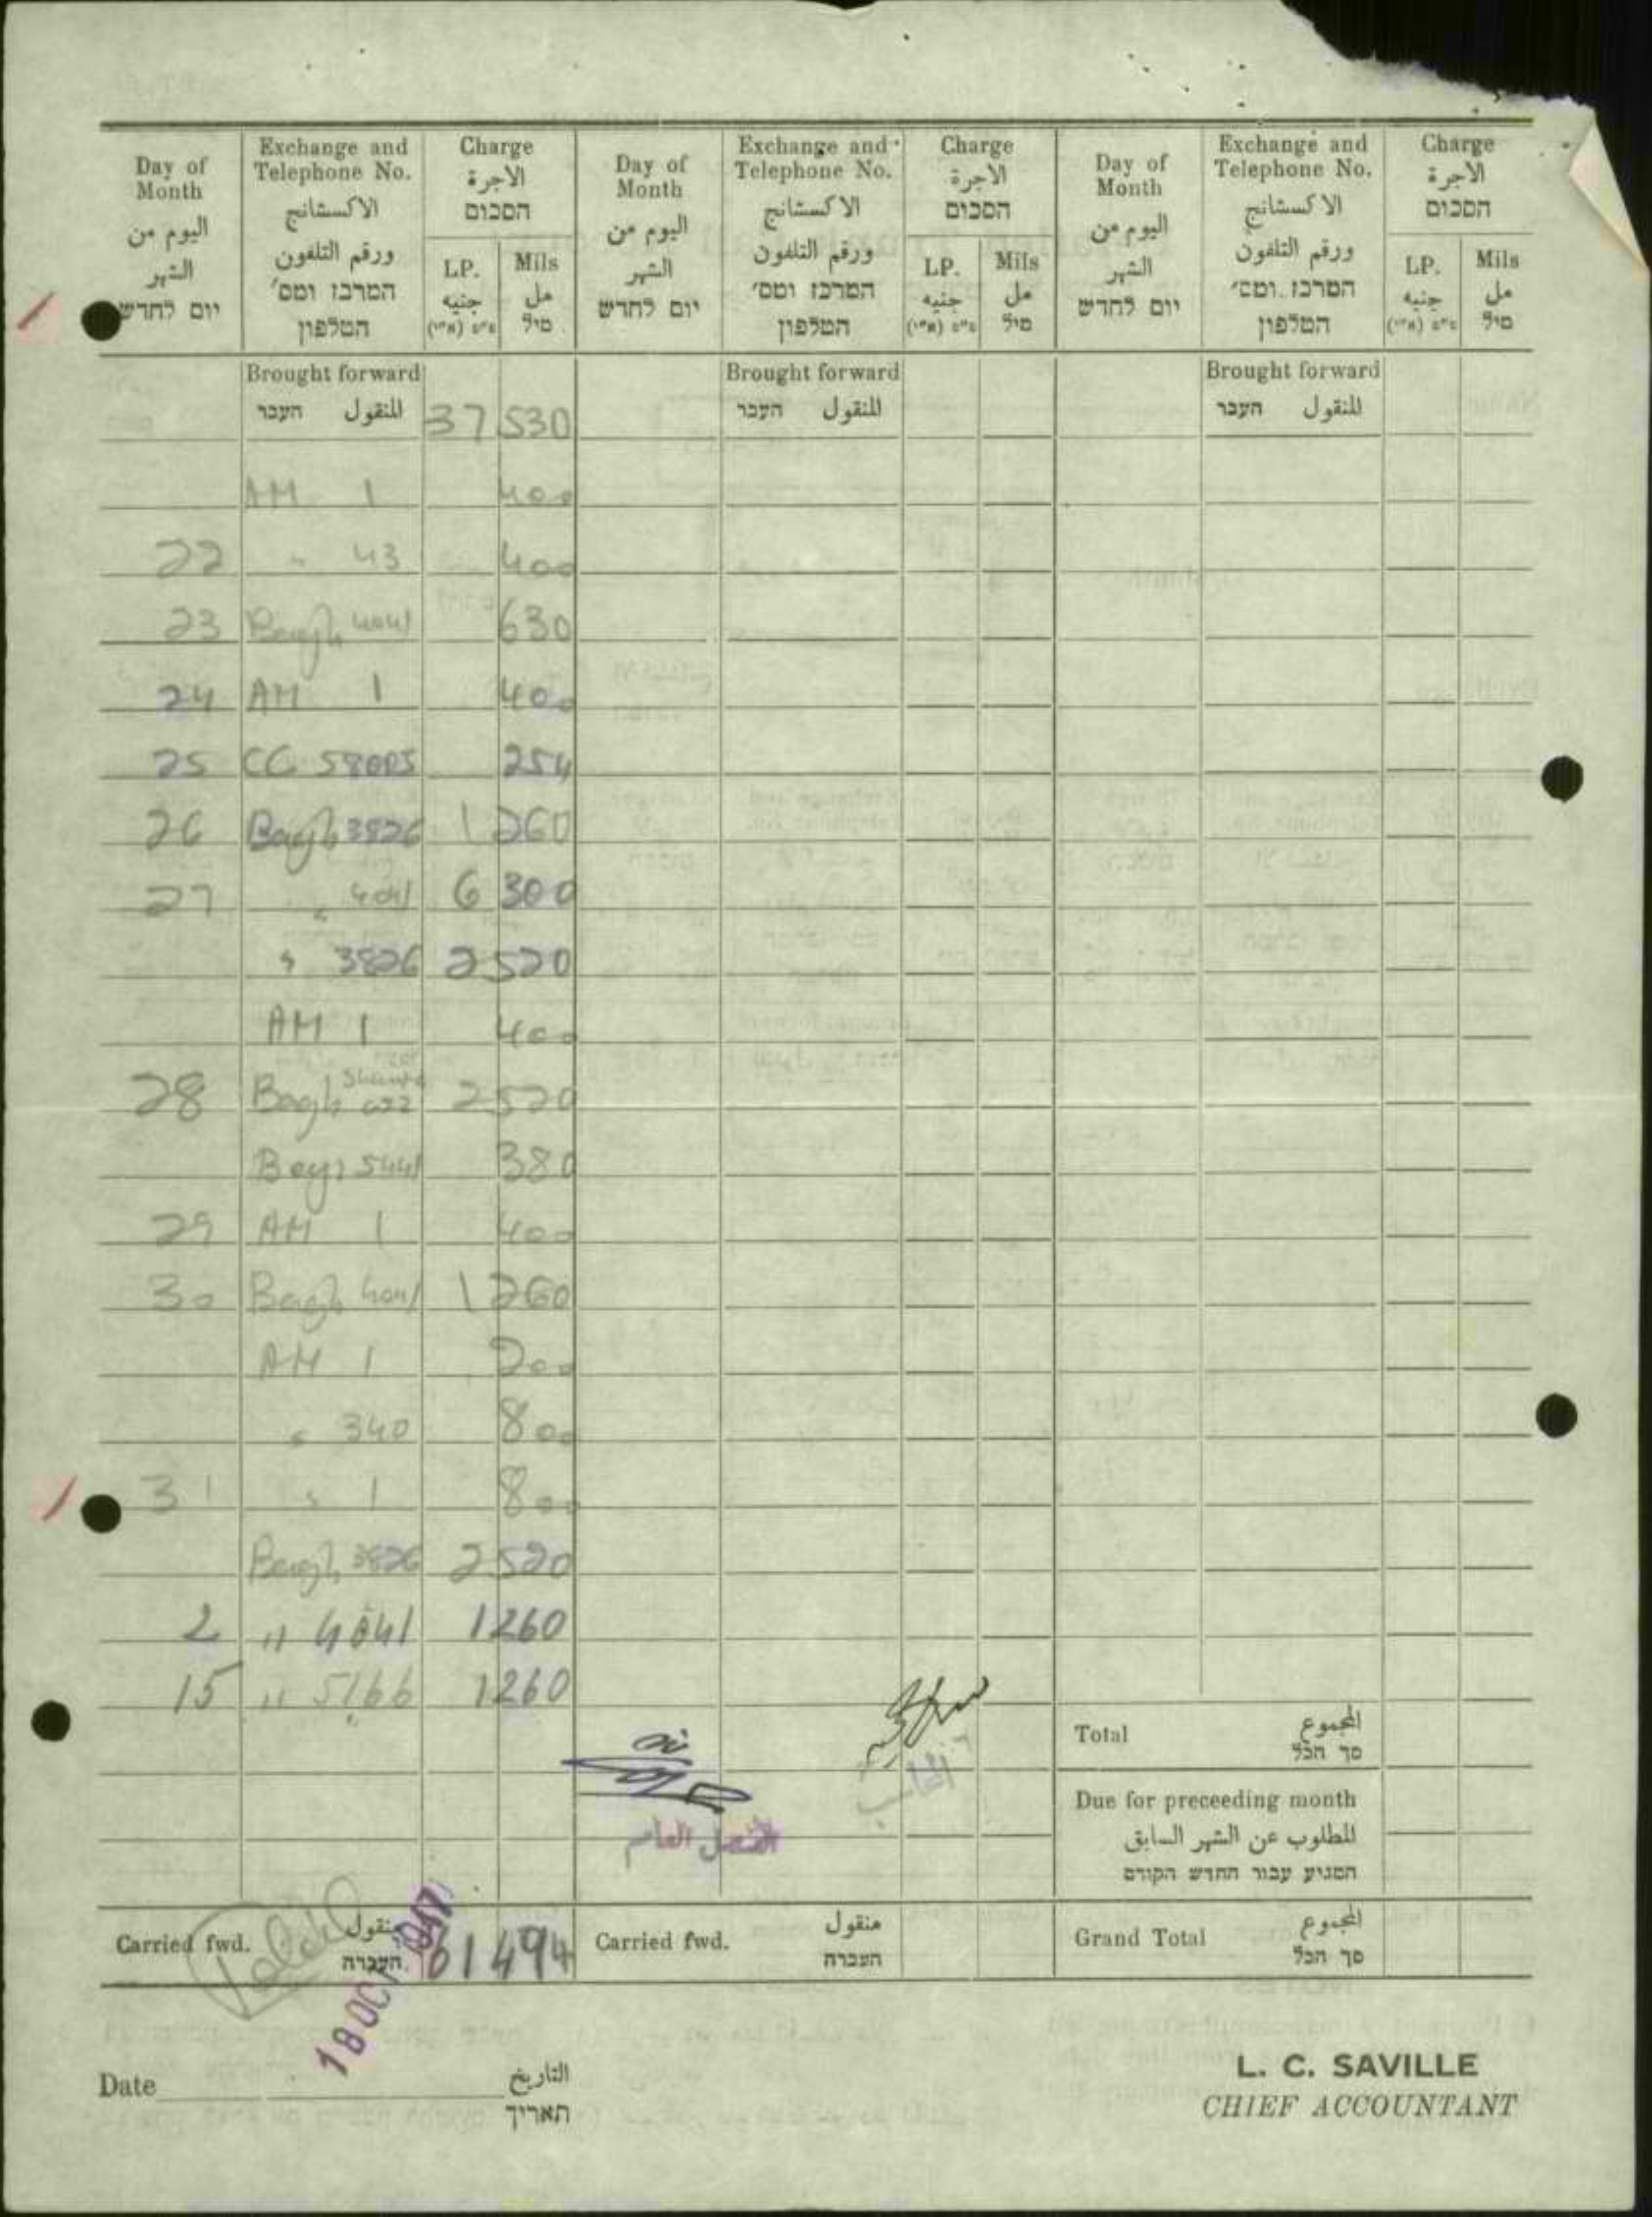 Day of Month اليوم من الشهر יום לחדש
Exchange and Telephone No. الاكستشانج ورقم التلفون המרכז ומס' הטלפון
Charge الاجرة הסכום
LP. جنيه א"פ (א"י)
Mils مل מיל
Day of Month اليوم من الشهر יום לחדש
Exchange and Telephone No. الاكستشانج ورقم التلفون המרכז ומס' הטלפון
Charge الاجرة הסכום
LP. جنيه א"פ (א"י)
Mils مل מיל
Day of Month اليوم من الشهر יום לחדש
Exchange and Telephone No. الاكستشانج ورقم التلفون המרכז ומס' הטלפון
Charge الاجرة הסכום
LP. جنيه א"פ (א"י)
Mils مل מיל
Brought forward 37 530 Brought forward Brought forward
המנقول העבר המנقول העבר המנقول העבר
AM 1 400
22 " 43 400
23 Bagh 4041 630
24 AM 1 400
25 CC 58005 254
26 Bagh 3826 1 260
27 " 4041 6 300
" 3826 2 520
AM 1 400
28 Bagh 622 2 520
Beyr 5441 380
29 AM 1 400
30 Bagh 4041 1 260
AM 1 200
" 340 800
31 " 1 800
Bagh 3826 2 520
2 " 4041 1 260
15 " 5166 1 260
Total المجموع סך הכל
Due for preceeding month
المطلوب عن الشهر السابق
המגיע עבור החדש הקודם
القنصل العام
المحاسب
Carried fwd. منقول העברה 61 494 Carried fwd. منقول העברה Grand Total المجموع סך הכל
18 OCT 1947
Date التاريخ תאריך
L. C. SAVILLE
CHIEF ACCOUNTANT